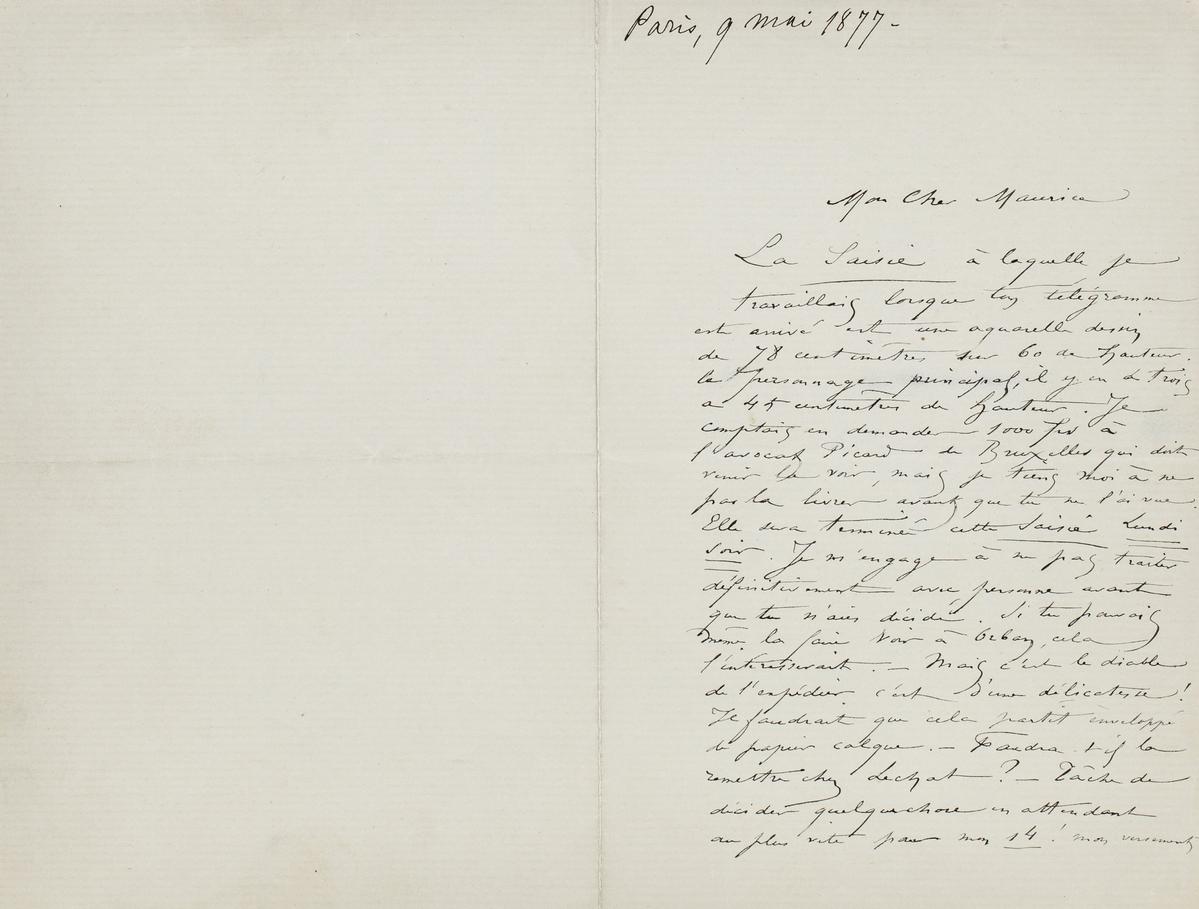 Paris, 9 mai 1877-
Mon Cher Maurice
La Saisie à laquelle je
travaillais lorsque ton télégramme
est arrivé est une aquarelle dessin
de 78 centimètres sur 60 de hauteur.
le personnage principal, il y en a trois
a 45 centimètres de hauteur. Je
comptais en demander 1000 frs à
l'avocat Picard de Bruxelles qui doit
venir la voir, mais je tiens moi à ne
pas la livrer avant que tu ne l'ai vue.
Elle sera terminée cette Saisie Lundi
soir. Je m'engage à ne pas traiter
définitivement avec personne avant
que tu n'aies décidé. Si tu pouvais
même la faire voir à Orban, cela
l'intéresserait. – Mais c'est le diable
de l'expédier c'est d'une délicatesse!
Il faudrait que cela partit enveloppé
de papier calque. – Faudra-t-il la
remettre chez Lechat ? – Tâche de
décider quelquechose en attendant
au plus vite pour mon 14 ! mon versement